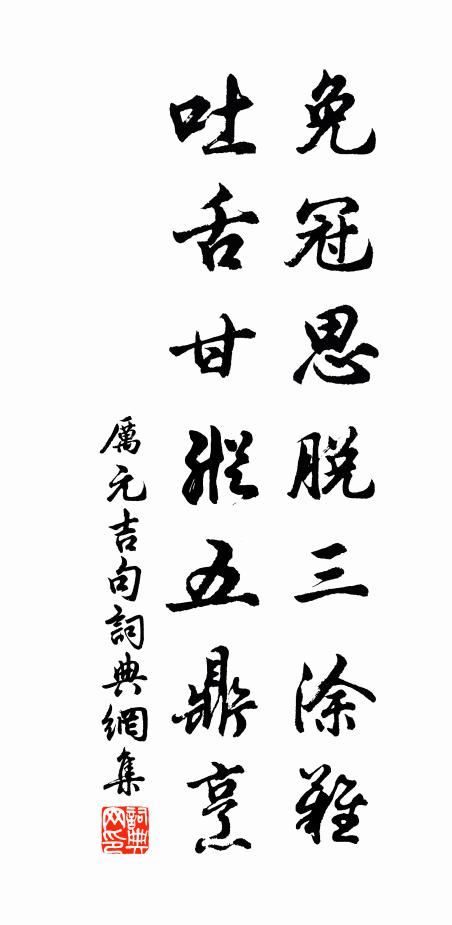 免冠思脱三涂難
吐舌甘縱五鼎烹
厲元吉句詞典網集
詞典网印